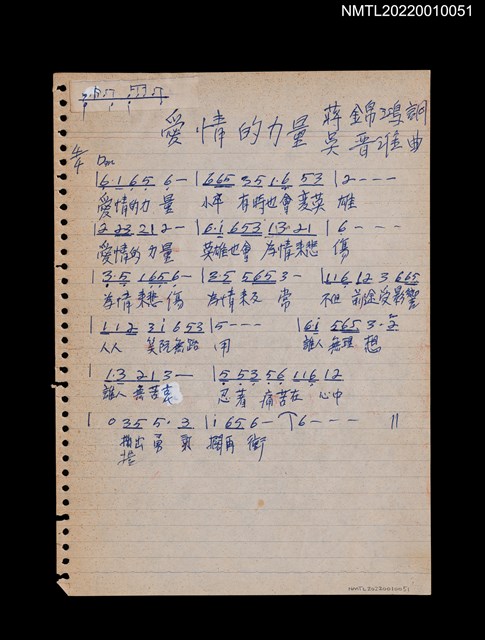 NMTL20220010051
愛情的力量 蔣錦鴻詞
吳晉淮曲
4/4 Dm
|6·1 65 6– |665 35 1·6 53 |2---
愛情的力量 小卒有時也會變英雄
|2 23 21 2– |6·1 653 1·3·21 |6---
愛情的力量 英雄也會為情來悲傷
|3·5 165 6– |35 565 3– |116 12 3 665
為情來悲傷 為情來 常 不但前途受影響
|112 3 1 653 |5--- |61 565 3·2
人人笑阮無路用 誰人無理想
|1·3 21 3– |5 53 56 116 12
誰人無苦衷 忍著痛苦在心中
|0 35 5·3 |1 65 6– |6--- ||
提出勇氣擱再衝
NMTL20220010051